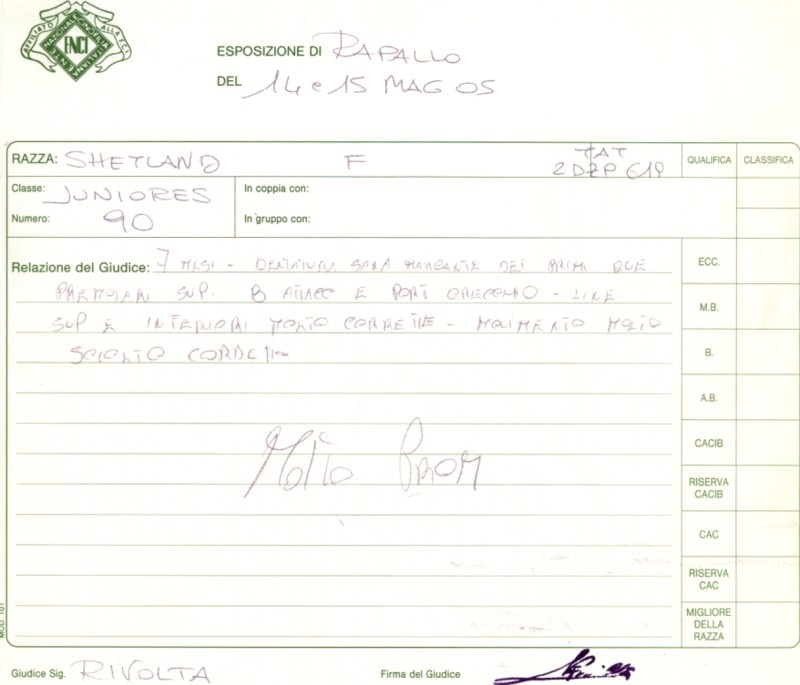 AFFILIATO ALLA F.C.I.
ENCI
ESPOSIZIONE DI RAPALLO
DEL 14 e 15 MAG 05
RAZZA: SHETLAND F TAT
QUALIFICA CLASSIFICA
Classe: JUNIORES In coppia con:
Numero: 90 In gruppo con:
Relazione del Giudice: 7 MESI - DENTATURA MANCANTE DEI PRIMI DUE
PREMOLARI SUP. B ATTACC E PORT ORECCHIO - LINE
SUP E INTERIORI MOLTO CORRETTE - MOVIMENTO MOLTO
SCIOLTO CORRETTO
Molto Prom
ECC.
M.B.
B.
A.B.
CACIB
RISERVA
CACIB
CAC
RISERVA
CAC
MIGLIORE
DELLA
RAZZA
MOD. 101
Giudice Sig. RIVOLTA Firma del Giudice